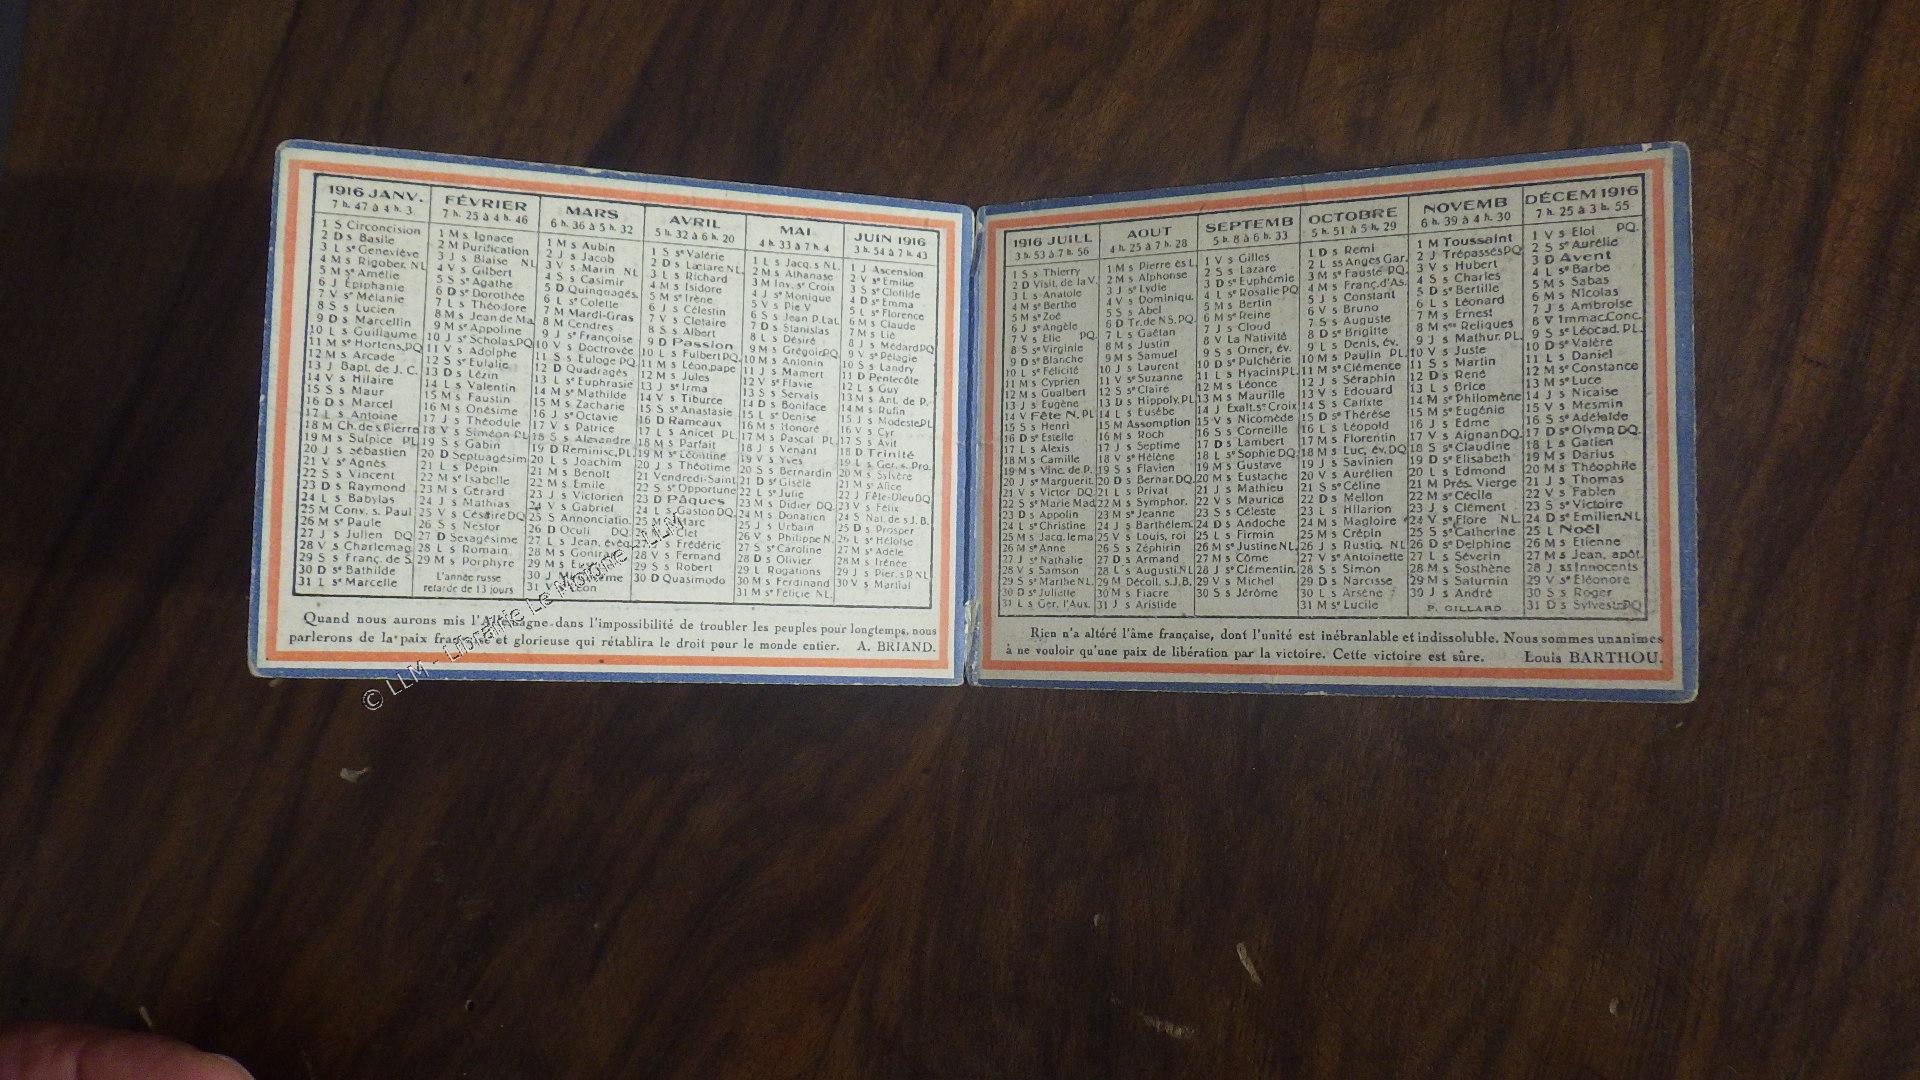 1916 JANV.
7 h. 47 à 4 h. 3
1 S Circoncision
2 D s Basile
3 L sᵉ Geneviève
4 M s Rigober. NL
5 M sᵉ Amélie
6 J Epiphanie
7 V sᵉ Mélanie
8 S s Lucien
9 D s Marcellin
10 L s Guillaume
11 M sᵉ Hortens.PQ
12 M s Arcade
13 J Bapt. de J. C.
14 V s Hilaire
15 S s Maur
16 D s Marcel
17 L s Antoine
18 M Ch. de s Pierre
19 M s Sulpice PL
20 J s Sébastien
21 V sᵉ Agnès
22 S s Vincent
23 D s Raymond
24 L s Babylas
25 M Conv. s. Paul
26 M sᵉ Paule
27 J s Julien DQ
28 V s Charlemag.
29 S s Franç. de S.
30 D sᵉ Bathilde
31 L sᵉ Marcelle
FÉVRIER
7 h. 25 à 4 h. 46
1 M s Ignace
2 M Purification
3 J s Blaise NL
4 V s Gilbert
5 S sᵉ Agathe
6 D sᵉ Dorothée
7 L s Théodore
8 M s Jean de Ma.
9 M sᵉ Appoline
10 J sᵉ Scholas.PQ
11 V s Adolphe
12 S sᵉ Eulalie
13 D s Lézin
14 L s Valentin
15 M s Faustin
16 M s Onésime
17 J s Théodule
18 V s Siméon PL
19 S s Gabin
20 D Septuagésim
21 L s Pépin
22 M sᵉ Isabelle
23 M s Gérard
24 J s Mathias
25 V s Césaire DQ
26 S s Nestor
27 D Sexagésime
28 L s Romain
29 M s Porphyre
L'année russe
retarde de 13 jours
MARS
6 h. 36 à 5 h. 32
1 M s Aubin
2 J s Jacob
3 V s Marin NL
4 S s Casimir
5 D Quinquagés.
6 L sᵉ Colette
7 M Mardi-Gras
8 M Cendres
9 J sᵉ Françoise
10 V s Doctrovée
11 S s Euloge PQ
12 D Quadragés
13 L sᵉ Euphrasie
14 M sᵉ Mathilde
15 M s Zacharie
16 J sᵉ Octavie
17 V s Patrice
18 S s Alexandre
19 D Reminisc.PL
20 L s Joachim
21 M s Benoît
22 M s Emile
23 J s Victorien
24 V s Gabriel
25 S Annonciatio.
26 D Oculi DQ
27 L s Jean, évêq.
AVRIL
5 h. 32 à 6 h. 20
1 S sᵉ Valérie
2 D s Lætare NL
3 L s Richard
4 M s Isidore
5 M sᵉ Irène
6 J s Célestin
7 V s Clotaire
8 S s Albert
9 D Passion
10 L s Fulbert PQ
11 M s Léon,pape
12 M s Jules
13 J sᵉ Irma
14 V s Tiburce
15 S sᵉ Anastasie
16 D Rameaux
17 L s Anicet PL
18 M s Parfait
19 M sᵉ Léontine
20 J s Théotime
21 Vendredi-Saint
22 S sᵉ Opportune
23 D Pâques
24 L s Gaston DQ
25 M s Marc
26 M s Clet
27 J s Frédéric
28 V s Fernand
29 S s Robert
30 D Quasimodo
MAI
4 h. 33 à 7 h. 4
1 L s Jacq.s NL
2 M s Athanase
3 M Inv. sᵉ Croix
4 J sᵉ Monique
5 V s Pie V
6 S s Jean P.Lat.
7 D s Stanislas
8 L s Désiré
9 M s Grégoir.PQ
10 M s Antonin
11 J s Mamert
12 V sᵉ Flavie
13 S s Servais
14 D s Boniface
15 L sᵉ Denise
16 M s Honoré
17 M s Pascal PL
18 J s Venant
19 V s Yves
20 S s Bernardin
21 D sᵉ Gisèle
22 L sᵉ Julie
23 M s Didier DQ
24 M s Donatien
25 J s Urbain
26 V s Philippe N.
27 S sᵉ Caroline
28 D s Olivier
29 L Rogations
30 M s Ferdinand
31 M sᵉ Félicie NL.
JUIN 1916
3 h. 54 à 7 h. 43
1 J Ascension
2 V sᵉ Emilie
3 S sᵉ Clotilde
4 D sᵉ Emma
5 L sᵉ Florence
6 M s Claude
7 M s Lié
8 J s Médard PQ
9 V sᵉ Pélagie
10 S s Landry
11 D Pentecôte
12 L s Guy
13 M s Ant. de P.
14 M s Rufin
15 J s Modeste PL
16 V s Cyr
17 S s Avit
18 D Trinité
19 L s Ger. s. Pro.
20 M s Sylvère
21 M sᵉ Alice
22 J Fête-Dieu DQ
23 V s Félix
24 S Nat. de s J. B.
25 D s Prosper
26 L sᵉ Héloïse
27 M sᵉ Adèle
28 M s Irénée
29 J s Pier.s P. NL
30 V s Martial
Quand nous aurons mis l'Allemagne dans l'impossibilité de troubler les peuples pour longtemps, nous
parlerons de la paix française et glorieuse qui rétablira le droit pour le monde entier. A. BRIAND.
1916 JUILL
3 h. 53 à 7 h. 56
1 S s Thierry
2 D Visit. de la V.
3 L s Anatole
4 M sᵉ Berthe
5 M sᵉ Zoé
6 J sᵉ Angèle
7 V s Elie PQ.
8 S sᵉ Virginie
9 D sᵉ Blanche
10 L sᵉ Félicité
11 M s Cyprien
12 M s Gualbert
13 J s Eugène
14 V Fête N. PL
15 S s Henri
16 D sᵉ Estelle
17 L s Alexis
18 M s Camille
19 M s Vinc. de P.
20 J sᵉ Marguerit.
21 V s Victor DQ
22 S sᵉ Marie Mad
23 D s Appolin
24 L sᵉ Christine
25 M s Jacq. le ma
26 M sᵉ Anne
27 J sᵉ Nathalie
28 V s Samson
29 S sᵉ Marthe NL.
30 D sᵉ Juliette
31 L s Ger. l'Aux.
AOUT
4 h. 25 à 7 h. 28
1 M s Pierre ès l.
2 M s Alphonse
3 J sᵉ Lydie
4 V s Dominiqu.
5 S s Abel
6 D Tr. de N S. PQ.
7 L s Gaëtan
8 M s Justin
9 M s Samuel
10 J s Laurent
11 V sᵉ Suzanne
12 S sᵉ Claire
13 D s Hippoly. PL
14 L s Eusèbe
15 M Assomption
16 M s Roch
17 J s Septime
18 V sᵉ Hélène
19 S s Flavien
20 D s Bernar. DQ.
21 L s Privat
22 M s Symphor.
23 M sᵉ Jeanne
24 J s Barthélem.
25 V s Louis, roi
26 S s Zéphirin
27 D s Armand
28 L s Augusti.NL
29 M Décoll. s.J.B.
30 M s Fiacre
31 J s Aristide
SEPTEMB
5 h. 8 à 6 h. 33
1 V s Gilles
2 S s Lazare
3 D sᵉ Euphémie
4 L sᵉ Rosalie PQ
5 M s Bertin
6 M sᵉ Reine
7 J s Cloud
8 V La Nativité
9 S s Omer, év.
10 D sᵉ Pulchérie
11 L s Hyacin PL
12 M s Léonce
13 M s Maurille
14 J Exalt. sᵉ Croix
15 V s Nicomède
16 S s Corneille
17 D s Lambert
18 L sᵉ Sophie DQ
19 M s Gustave
20 M s Eustache
21 J s Mathieu
22 V s Maurice
23 S s Céleste
24 D s Andoche
25 L s Firmin
26 M sᵉ Justine NL
27 M s Côme
28 J sᵉ Clémentin.
29 V s Michel
30 S s Jérôme
OCTOBRE
5 h. 51 à 5 h. 29
1 D s Remi
2 L ss Anges Gar.
3 M sᵉ Fausté PQ.
4 M s Franç.d'As.
5 J s Constant
6 V s Bruno
7 S s Auguste
8 D sᵉ Brigitte
9 L s Denis, év.
10 M s Paulin PL.
11 M sᵉ Clémence
12 J s Séraphin
13 V s Edouard
14 S s Calixte
15 D sᵉ Thérèse
16 L s Léopold
17 M s Florentin
18 M s Luc, év. DQ
19 J s Savinien
20 V s Aurélien
21 S sᵉ Céline
22 D s Mellon
23 L s Hilarion
24 M s Magloire
25 M s Crépin
26 J s Rustiq. NL
27 V sᵉ Antoinette
28 S s Simon
29 D s Narcisse
30 L s Arsène
31 M sᵉ Lucile
NOVEMB
6 h. 39 à 4 h. 30
1 M Toussaint
2 J Trépassés PQ
3 V s Hubert
4 S s Charles
5 D sᵉ Bertille
6 L s Léonard
7 M s Ernest
8 M sᵉˢ Reliques
9 J s Mathur. PL.
10 V s Juste
11 S s Martin
12 D s René
13 L s Brice
14 M sᵉ Philomène
15 M sᵉ Eugénie
16 J s Edme
17 V s Aignan DQ.
18 S sᵉ Claudine
19 D sᵉ Elisabeth
20 L s Edmond
21 M Prés. Vierge
22 M sᵉ Cécile
23 J s Clément
24 V sᵉ Flore NL.
25 S sᵉ Catherine
26 D sᵉ Delphine
27 L s Séverin
28 M s Sosthène
29 M s Saturnin
30 J s André
P. GILLARD
DÉCEM 1916
7 h. 25 à 3 h. 55
1 V s Eloi PQ.
2 S sᵉ Aurélie
3 D Avent
4 L sᵉ Barbe
5 M s Sabas
6 M s Nicolas
7 J s Ambroise
8 V Immac.Conc.
9 S sᵉ Léocad. PL.
10 D sᵉ Valère
11 L s Daniel
12 M sᵉ Constance
13 M sᵉ Luce
14 J s Nicaise
15 V s Mesmin
16 S sᵉ Adélaïde
17 D sᵉ Olymp DQ.
18 L s Gatien
19 M s Darius
20 M s Théophile
21 J s Thomas
22 V s Fabien
23 S sᵉ Victoire
24 D sᵉ Emilien.NL
25 L Noël
26 M s Etienne
27 M s Jean, apôt.
28 J ss Innocents
29 V sᵉ Eléonore
30 S s Roger
31 D s Sylvest.PQ
Rien n'a altéré l'âme française, dont l'unité est inébranlable et indissoluble. Nous sommes unanimes
à ne vouloir qu'une paix de libération par la victoire. Cette victoire est sûre. Louis BARTHOU.
© LLM - Librairie Le Moigne - LLM